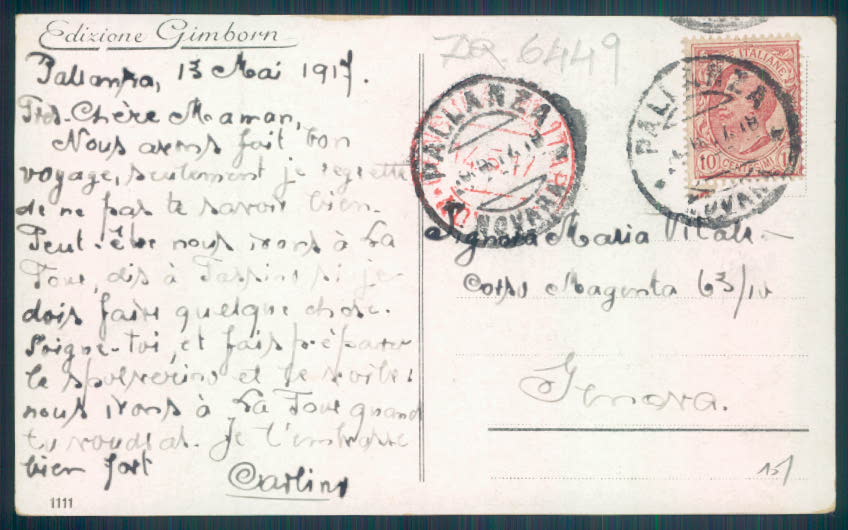 Edizione Gimborn
Pallanza, 13 Mai 1917.
Très-Chère Maman,
Nous avons fait bon
voyage, seulement je regrette
de ne pas te savoir bien.
Peut-être nous irons à La
Tour, dis à si je
dois faire quelque chose.
Soigne-toi, et fais préparer
le spolverino et le voile:
nous irons à La Tour quand
tu voudras. Je t'embrasse
bien fort
Carlino
1111
ZR. 6449
PALLANZA
NOVARA
POSTE ITALIANE
10 CENTESIMI 10
PALLANZA
NOVARA
Signora Maria Vitale
Corso Magenta 63/10
Genova.
15/